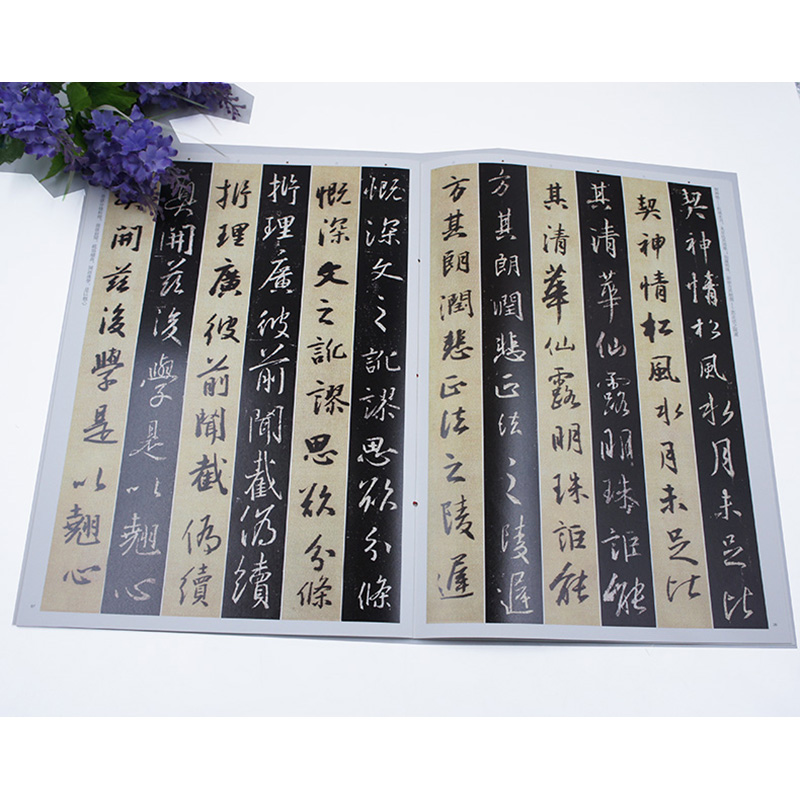 契神情松風水月未足比
契神情松風水月未足比
其清華仙露明珠詎能
其清華仙露明珠詎能
方其朗潤悲正法之陵遲
方其朗潤悲正法之陵遲
慨深文之訛謬思欲分條
慨深文之訛謬思欲分條
析理廣彼前聞截偽續
析理廣彼前聞截偽續
真開茲後學是以翹心
真開茲後學是以翹心